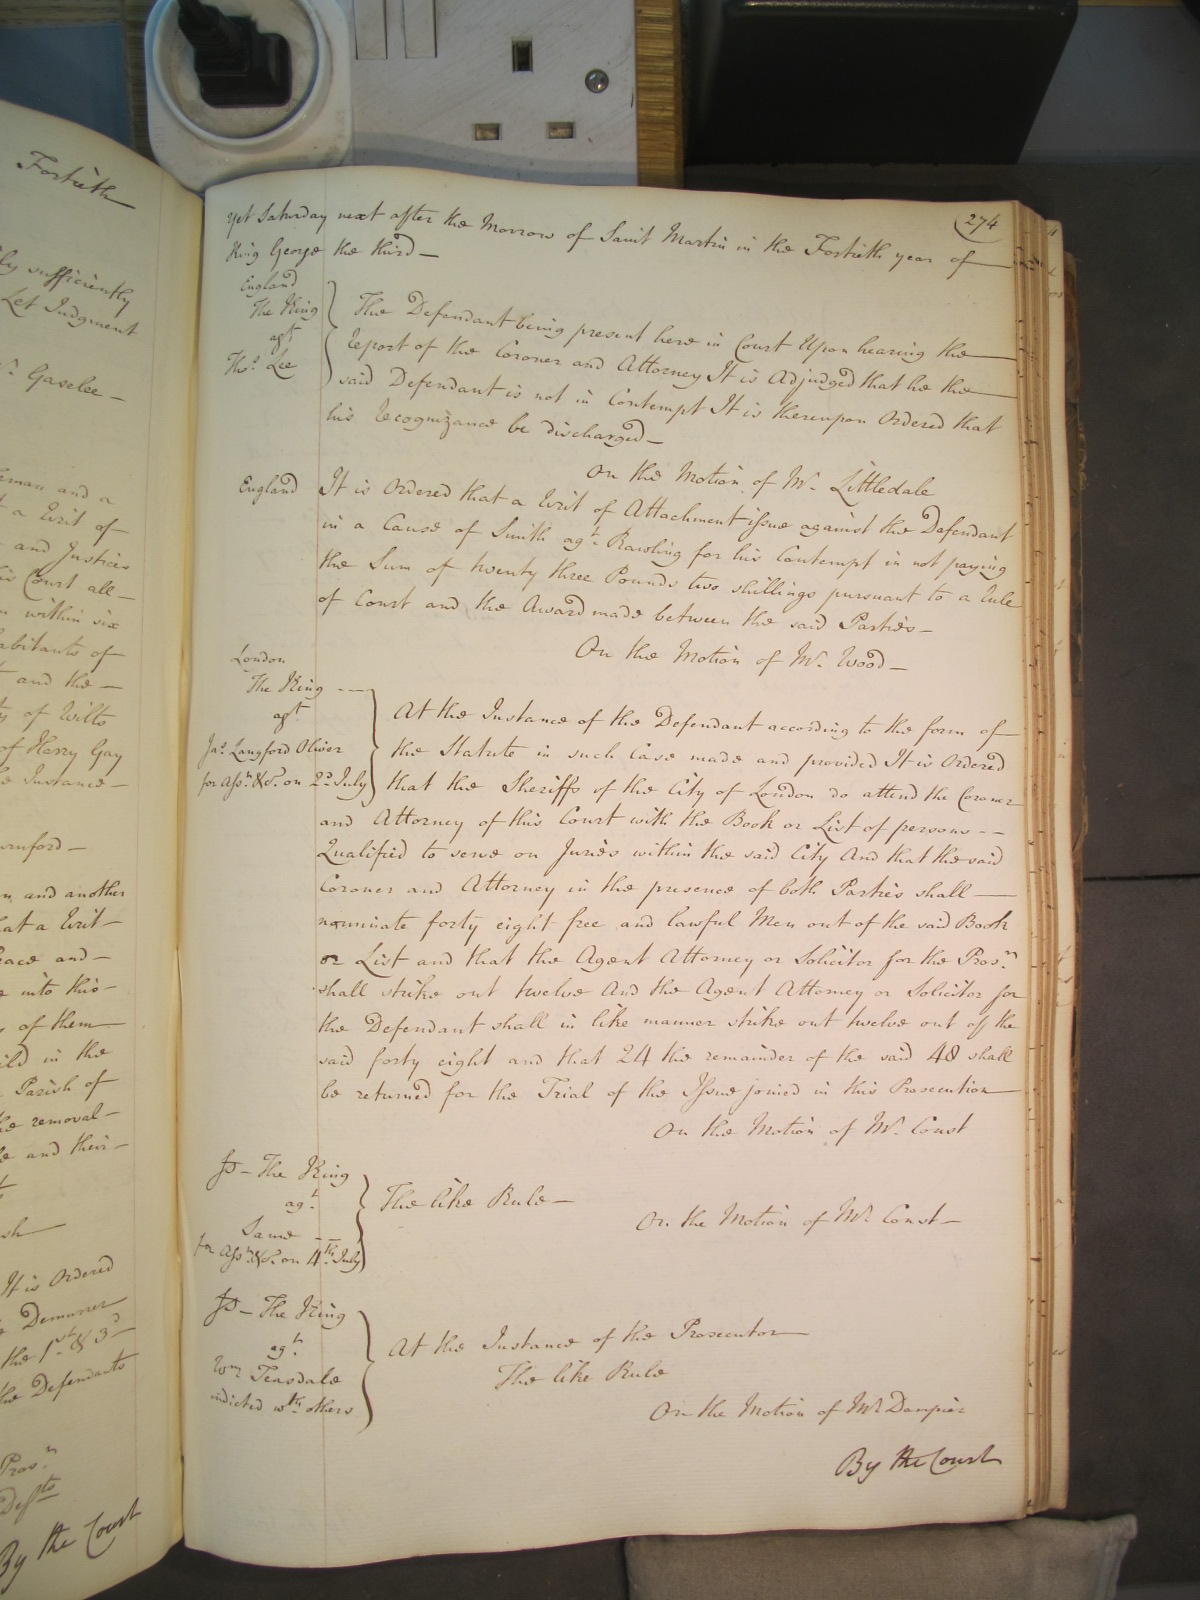 Fortieth
ly sufficiently
Let Judgment
Gaselee —
eman and a
a Writ of
and Justices
is Court all —
within six
abitants of
and the —
of Wilts
of Harry Gay
Instance —
urnford —
and another
hat a Writ —
eace and —
into this —
of them
ild in the
Parish of
he removal —
and their —
It is Ordered
Demurrer
the 1st & 3d
the Defendants
Prosn
Defts
By the Court
274
Yet Saturday next after the Morrow of Saint Martin in the Fortieth year of
King George the third —
England
The King
agt
Thos Lee
The Defendant being present here in Court Upon hearing the
report of the Coroner and Attorney It is Adjudged that he the
said Defendant is not in Contempt It is thereupon Ordered that
his recognizance be discharged —
On the Motion of Mr. Littledale
England
It is Ordered that a Writ of Attachment issue against the Defendant
in a Cause of Smith agt Rawling for his Contempt in not paying
the Sum of twenty three Pounds two shillings pursuant to a Rule
of Court and the Award made between the said Parties —
On the Motion of Mr. Wood —
London
The King
agt
Jas Langford Oliver
for Asst. &c. on 2d July
At the Instance of the Defendant according to the form of
the Statute in such Case made and provided It is Ordered
that the Sheriffs of the City of London do attend the Coroner
and Attorney of this Court with the Book or List of persons --
Qualified to serve on Juries within the said City And that the said
Coroner and Attorney in the presence of both Parties shall —
nominate forty eight free and lawful Men out of the said Book
or List and that the Agent Attorney or Solicitor for the Prosn
shall strike out twelve And the Agent Attorney or Solicitor for
the Defendant shall in like manner strike out twelve out of the
said forty eight and that 24 the remainder of the said 48 shall
be returned for the Trial of the Issue joined in this Prosecution —
On the Motion of Mr. Const
The King
agt
Same
for Asst. &c. on 4th July
The like Rule —
On the Motion of Mr Const —
The King
agt
Wm Teasdale
indicted wth others
At the Instance of the Prosecutor —
The like Rule
On the Motion of Mr Dampier
By the Court